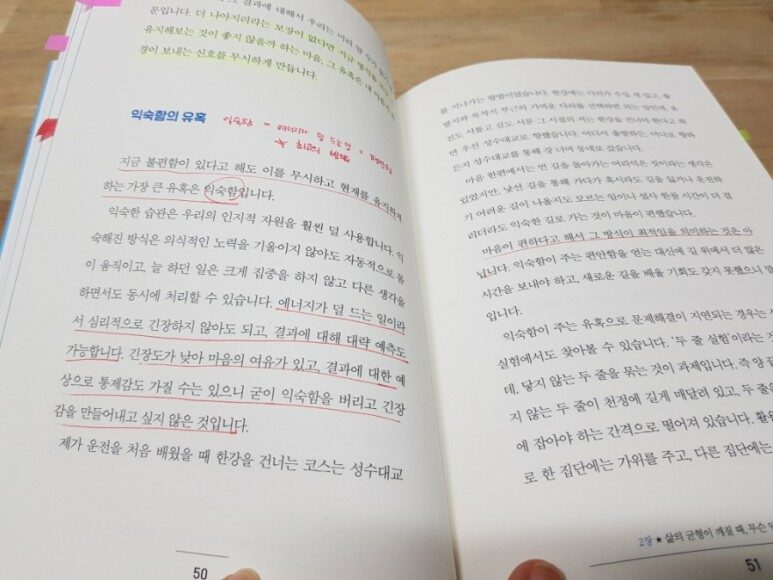 그 결과에 대해서 우리는 미리 알 수가 없
문입니다. 더 나아지리라는 보장이 없다면 지금 병
유지해보는 것이 좋지 않을까 하는 마음, 그 유혹은 내
경이 보내는 신호를 무시하게 만듭니다.
익숙함의 유혹
익숙함 = 에너지가 덜 드는 일 =
최고의 방법
지금 불편함이 있다고 해도 이를 무시하고 현재를 유지하게
하는 가장 큰 유혹은 익숙함입니다.
익숙한 습관은 우리의 인지적 자원을 훨씬 덜 사용합니다. 익
숙해진 방식은 의식적인 노력을 기울이지 않아도 자동적으로 몸
이 움직이고, 늘 하던 일은 크게 집중을 하지 않고 다른 생각을
하면서도 동시에 처리할 수 있습니다. 에너지가 덜 드는 일이라
서 심리적으로 긴장하지 않아도 되고, 결과에 대해 대략 예측도
가능합니다. 긴장도가 낮아 마음의 여유가 있고, 결과에 대한 예
상으로 통제감도 가질 수는 있으니 굳이 익숙함을 버리고 긴장
감을 만들어내고 싶지 않은 것입니다.
제가 운전을 처음 배웠을 때 한강을 건너는 코스는 성수대교
50
를 지나가는 방법이었습니다. 한강에는 다리가 수십 개 있고, 출
발지와 목적지 부근의 가까운 다리를 선택하면 되는 일인데, 운
전도 서툴고 길도 서툰 그 시절의 저는 한강을 건너야 한다고 하
면 우선 성수대교로 향했습니다. 어디서 출발하든, 어디로 향하
든지 성수대교를 통해 강 너머 동네로 갔습니다.
마음 한편에서는 먼 길을 돌아가는 어리석은 짓이라는 생각은
있었지만, 낯선 길을 통해 가다가 혹시라도 길을 잃거나 운전하
기 어려운 길이 나올지도 모르는 일이니 설사 한참 시간이 더 걸
리더라도 익숙한 길로 가는 것이 마음이 편했습니다.
마음이 편하다고 해서 그 방식이 최적임을 의미하는 것은 아
닙니다. 익숙함이 주는 편안함을 얻는 대신에 길 위에서 더 많은
시간을 보내야 하고, 새로운 길을 배울 기회도 갖지 못했으니 말
입니다.
익숙함이 주는 유혹으로 문제해결이 지연되는 경우는
실험에서도 찾아볼 수 있습니다. '두 줄 실험'이라는 것
데, 닿지 않는 두 줄을 묶는 것이 과제입니다. 즉 양
지 않는 두 줄이 천정에 길게 매달려 있고, 두 줄을
에 잡아야 하는 간격으로 떨어져 있습니다. 활
로 한 집단에는 가위를 주고, 다른 집단에는
2장 ★ 삶의 균형이 깨질 때, 무슨
51